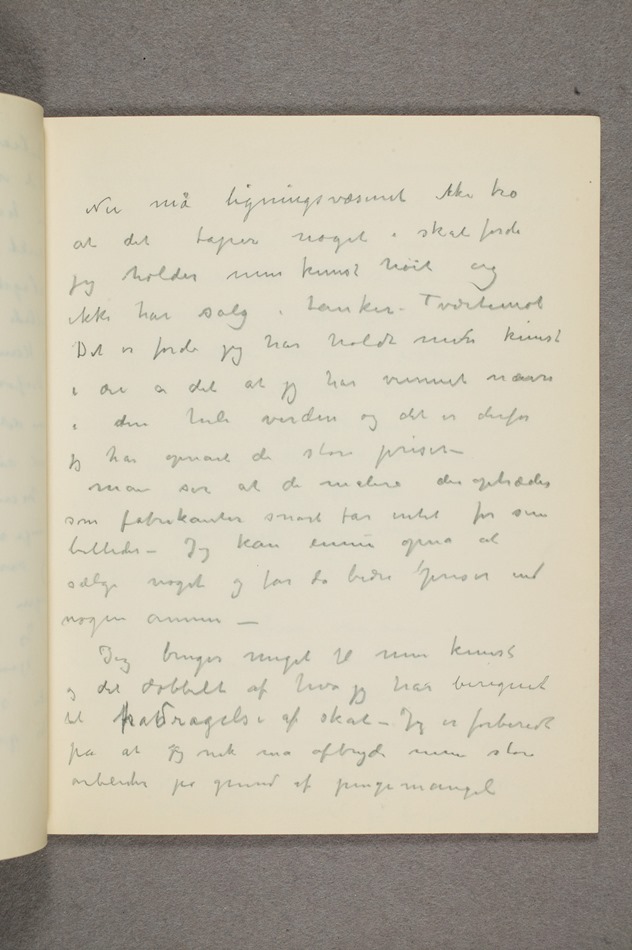 Nu må ligningsvæsenet ikke tro
at det taper noget i skat fordi
jeg holder min kunst høit og
ikke har salg i tanker – Tvertimot
Det er fordi jeg har holdt min kunst
i ære at jeg har vunnet navn
i den hele verden og det er derfor
jeg har opnaaet de store priser –
man ser at de malere der optræder
som fabrikanter snart får intet for sine
billeder – Jeg kan ennu opnå at
sælge noget og får da bedre priser end
nogen annen –
Jeg bruger meget til min kunst
og det dobbelt af hva jeg har beregnet
til fradragelse af skat – Jeg er forberedt
på at jeg nok må afbryde mine store
arbeider på grund af pengemangel